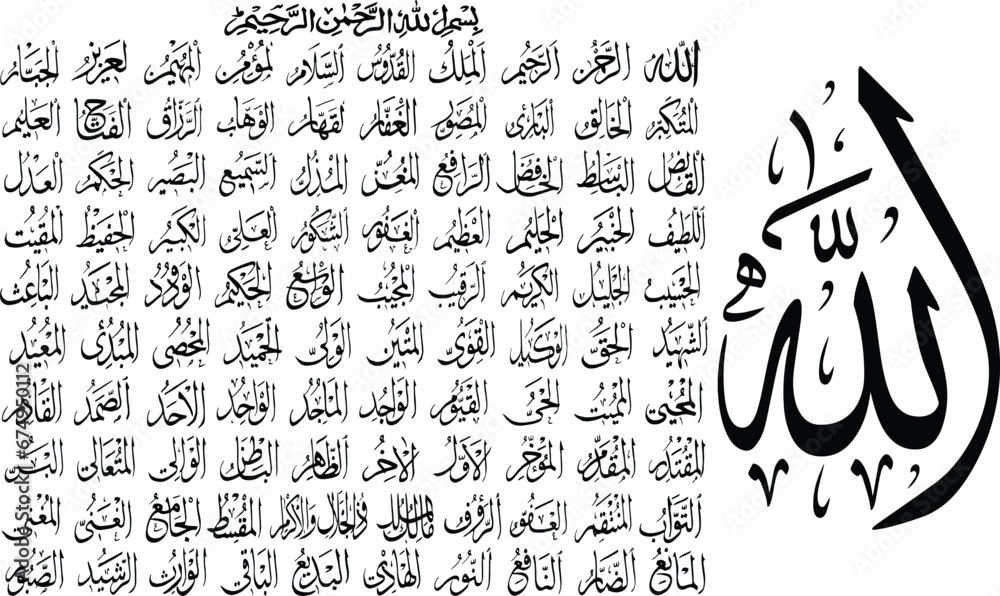 بسم الله الرحمن الرحيم
الله الرحمن الرحيم الملك القدوس السلام المؤمن المهيمن العزيز الجبار
المتكبر الخالق البارئ المصور الغفار القهار الوهاب الرزاق الفتاح العليم
القابض الباسط الخافض الرافع المعز المذل السميع البصير الحكم العدل
اللطيف الخبير الحليم العظيم الغفور الشكور العلي الكبير الحفيظ المقيت
الحسيب الجليل الكريم الرقيب المجيب الواسع الحكيم الودود المجيد الباعث
الشهيد الحق الوكيل القوي المتين الولي الحميد المحصي المبدئ المعيد
المحيي المميت الحي القيوم الواجد الماجد الواحد الأحد الصمد القادر
المقتدر المقدم المؤخر الأول الآخر الظاهر الباطن الوالي المتعالي البر
التواب المنتقم العفو الرؤوف مالك الملك ذو الجلال والإكرام المقسط الجامع الغني المغني
المانع الضار النافع النور الهادي البديع الباقي الوارث الرشيد الصبور
الله
Adobe Stock | #674950112